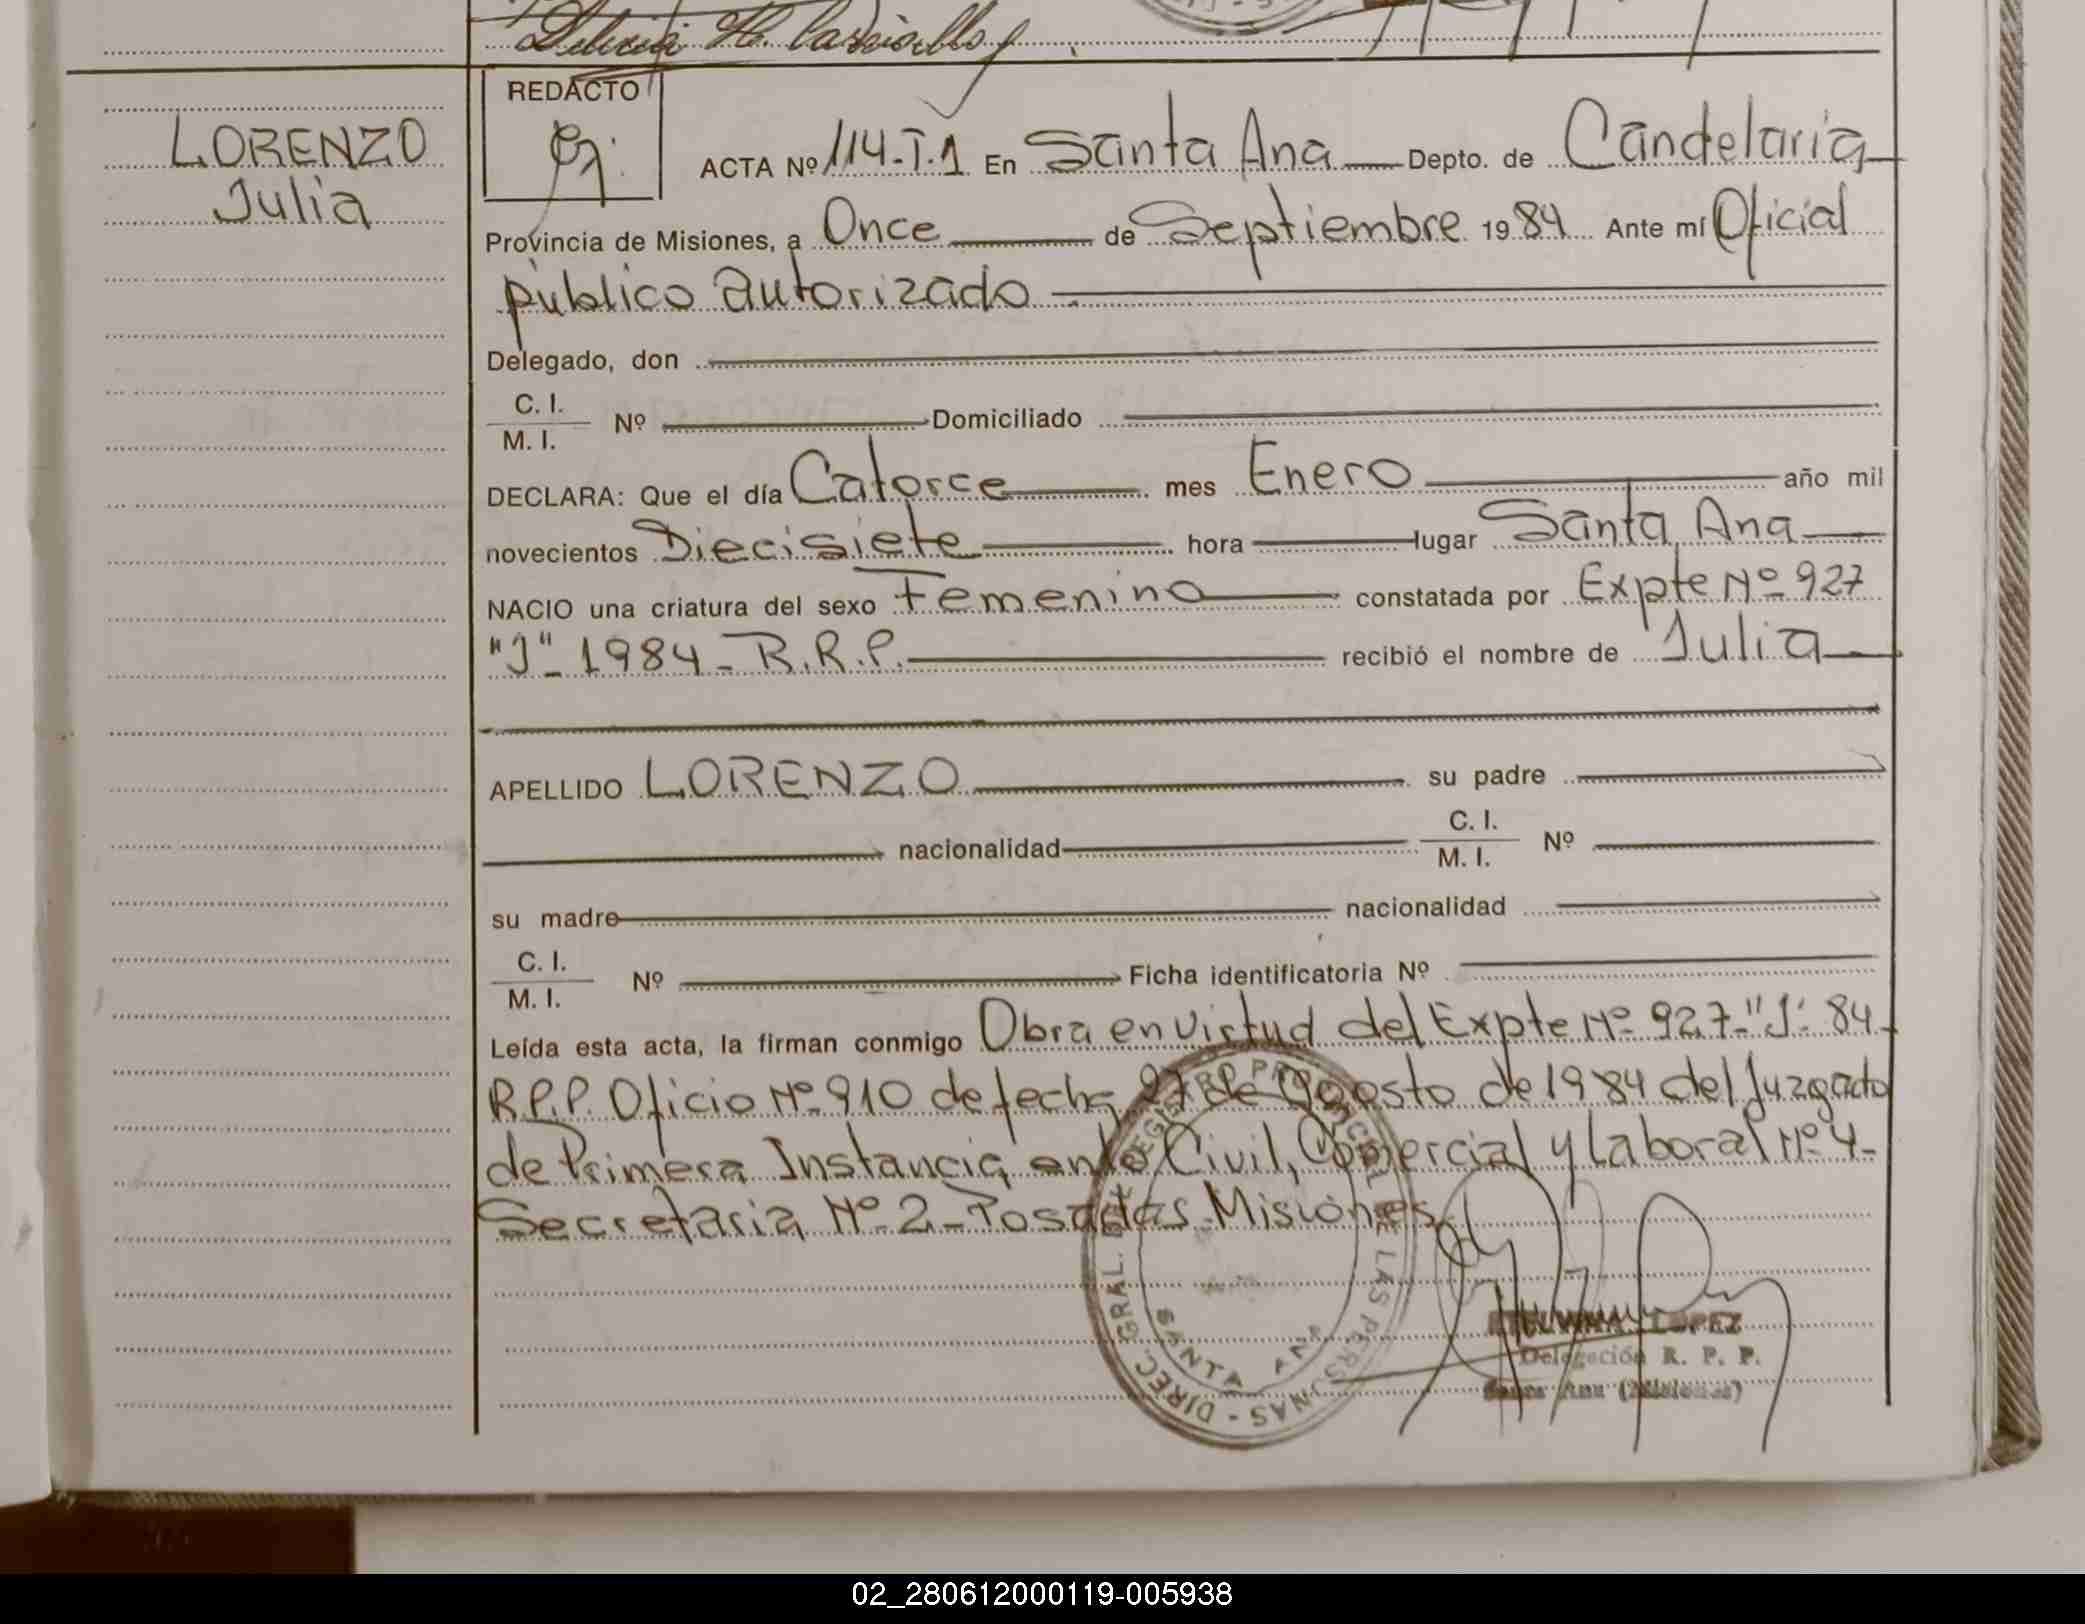 LORENZO
Julia
REDACTO
ACTA Nº 114-T.1 En Santa Ana Depto. de Candelaria
Provincia de Misiones, a Once de Septiembre 1984 Ante mí Oficial
público autorizado
Delegado, don
C. I.
M. I. Nº Domiciliado
DECLARA: Que el día Catorce mes Enero año mil
novecientos Diecisiete hora lugar Santa Ana
NACIO una criatura del sexo Femenino constatada por Expte Nº 927
"J" 1984 - R.R.P. recibió el nombre de Julia
APELLIDO LORENZO su padre
nacionalidad C. I.
M. I. Nº
su madre nacionalidad
C. I.
M. I. Nº Ficha identificatoria Nº
Leída esta acta, la firman conmigo Obra en virtud del Expte Nº 927-"J" 84
R.P.P. Oficio Nº 910 de fecha 27 de Agosto de 1984 del Juzgado
de Primera Instancia en lo Civil, Comercial y Laboral Nº 4-
Secretaria Nº 2 - Posadas - Misiones
DIREC. GRAL. DEL REGISTRO PROVINCIAL DE LAS PERSONAS -
SANTA ANA
LOPEZ
Delegación R. P. P.
Santa Ana (Misiones)
02_280612000119-005938